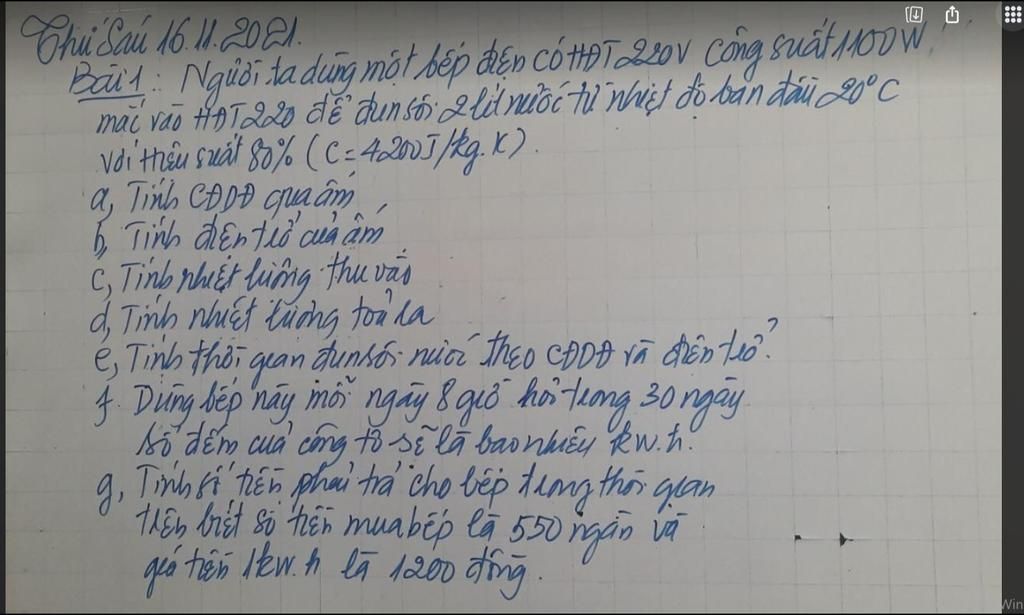 Thứ Sáu 16.11.2021.
Bài 1: Người ta dùng một bếp điện có HĐT 220V công suất 1100W
mắc vào HĐT 220 để đun sôi 2 lít nước từ nhiệt độ ban đầu 20°C
với hiệu suất 80% (C = 4200J/kg.K).
a, Tính CĐDĐ qua ấm
b, Tính điện trở của ấm
c, Tính nhiệt lượng thu vào
d, Tính nhiệt lượng toả ra
e, Tính thời gian đun sôi nước theo CĐDĐ và điện trở?
f. Dùng bếp này mỗi ngày 8 giờ hỏi trong 30 ngày
số đếm của công tơ sẽ là bao nhiêu kw.h.
g, Tính số tiền phải trả cho bếp trong thời gian
trên biết số tiền mua bếp là 550 ngàn và
giá tiền 1kw.h là 1200 đồng.
Win